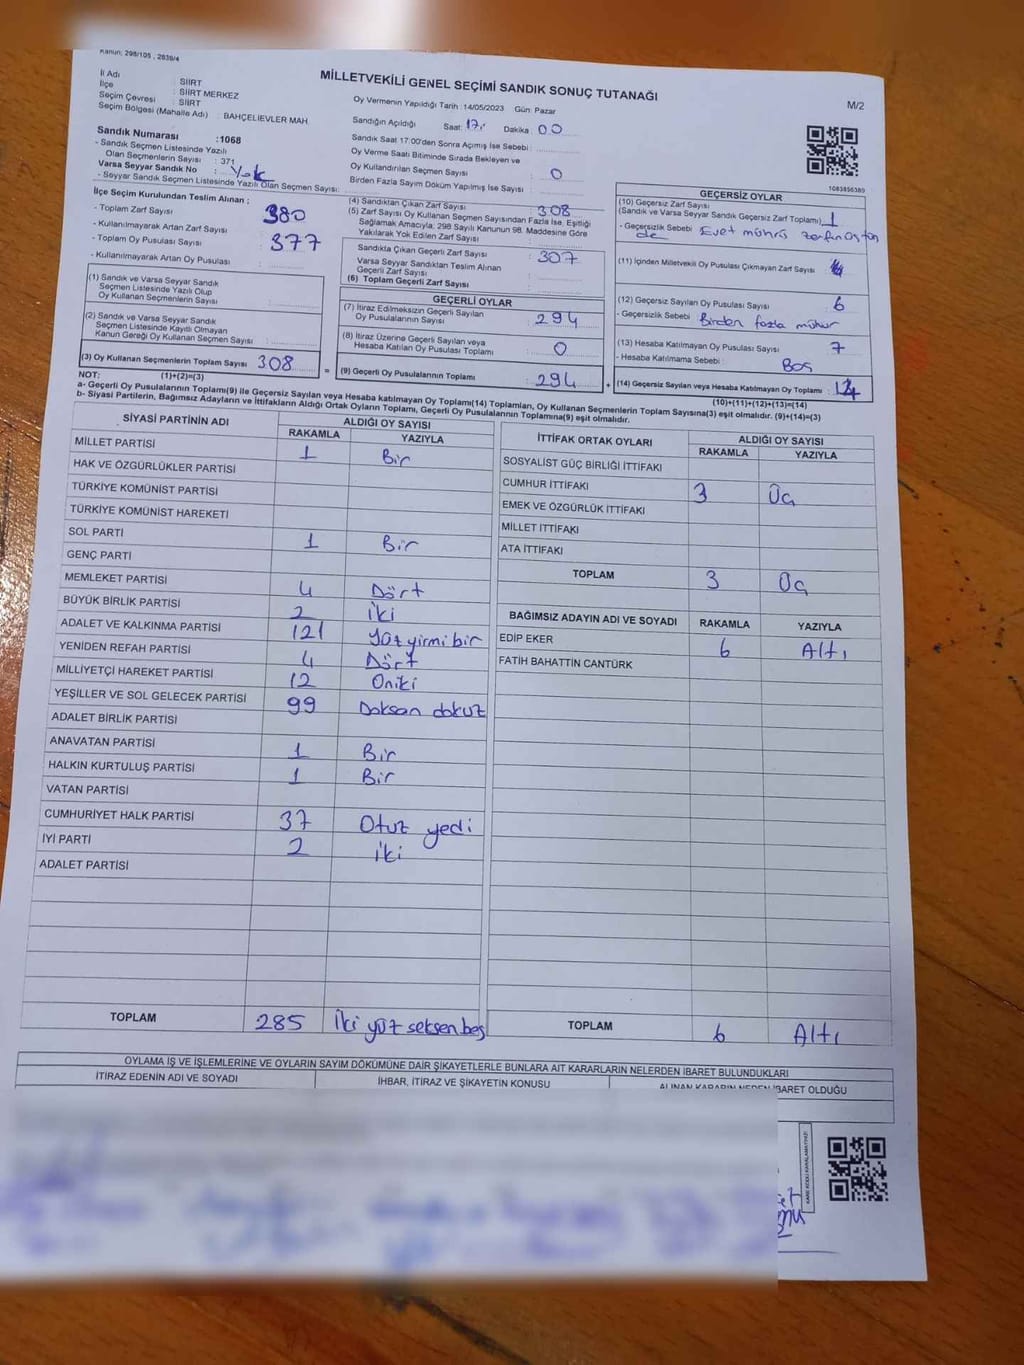 Kanun; 298/105 , 2839/4
MİLLETVEKİLİ GENEL SEÇİMİ SANDIK SONUÇ TUTANAĞI
M/2
İl Adı : SİİRT
İlçe : SİİRT MERKEZ
Seçim Çevresi : SİİRT
Seçim Bölgesi (Mahalle Adı) : BAHÇELİEVLER MAH.
Sandık Numarası :1068
- Sandık Seçmen Listesinde Yazılı
Olan Seçmenlerin Sayısı : 371
Varsa Seyyar Sandık No : Yok
- Seyyar Sandık Seçmen Listesinde Yazılı Olan Seçmen Sayısı:
Oy Vermenin Yapıldığı Tarih :14/05/2023 Gün: Pazar
Sandığın Açıldığı Saat: 17 Dakika : 00
Sandık Saat 17:00'den Sonra Açımış İse Sebebi :
Oy Verme Saati Bitiminde Sırada Bekleyen ve
Oy Kullandırılan Seçmen Sayısı : 0
Birden Fazla Sayım Döküm Yapılmış İse Sayısı :
1083856389
İlçe Seçim Kurulundan Teslim Alınan ;
- Toplam Zarf Sayısı : 380
- Kullanılmayarak Artan Zarf Sayısı :
- Toplam Oy Pusulası Sayısı : 377
- Kullanılmayarak Artan Oy Pusulası :
(1) Sandık ve Varsa Seyyar Sandık
Seçmen Listesinde Yazılı Olup
Oy Kullanan Seçmenlerin Sayısı :
(2) Sandık ve Varsa Seyyar Sandık
Seçmen Listesinde Kayıtlı Olmayan
Kanun Gereği Oy Kullanan Seçmen Sayısı :
(3) Oy Kullanan Seçmenlerin Toplam Sayısı : 308
(1)+(2)=(3)
(4) Sandıktan Çıkan Zarf Sayısı : 308
(5) Zarf Sayısı Oy Kullanan Seçmen Sayısından Fazla İse, Eşitliği
Sağlamak Amacıyla; 298 Sayılı Kanunun 98. Maddesine Göre
Yakılarak Yok Edilen Zarf Sayısı :
Sandıkla Çıkan Geçerli Zarf Sayısı : 307
Varsa Seyyar Sandıktan Teslim Alınan
Geçerli Zarf Sayısı :
(6) Toplam Geçerli Zarf Sayısı :
GEÇERLİ OYLAR
(7) İtiraz Edilmeksizin Geçerli Sayılan
Oy Pusulalarının Sayısı : 294
(8) İtiraz Üzerine Geçerli Sayılan veya
Hesaba Katılan Oy Pusulası Toplamı : 0
= (9) Geçerli Oy Pusulalarının Toplamı : 294 +
GEÇERSİZ OYLAR
(10) Geçersiz Zarf Sayısı
(Sandık ve Varsa Seyyar Sandık Geçersiz Zarf Toplamı) : 1
- Geçersizlik Sebebi : Evet mührü zarfın üstün
de
(11) İçinden Milletvekili Oy Pusulası Çıkmayan Zarf Sayısı :
(12) Geçersiz Sayılan Oy Pusulası Sayısı : 6
- Geçersizlik Sebebi : Birden fazla mühür
(13) Hesaba Katılmayan Oy Pusulası Sayısı : 7
- Hesaba Katılmama Sebebi : Boş
(14) Geçersiz Sayılan veya Hesaba Katılmayan Oy Toplamı : 14
(10)+(11)+(12)+(13)=(14)
NOT:
a- Geçerli Oy Pusulalarının Toplamı(9) ile Geçersiz Sayılan veya Hesaba katılmayan Oy Toplamı(14) Toplamları, Oy Kullanan Seçmenlerin Toplam Sayısına(3) eşit olmalıdır. (9)+(14)=(3)
b- Siyasi Partilerin, Bağımsız Adayların ve İttifakların Aldığı Ortak Oyların Toplamı, Geçerli Oy Pusulalarının Toplamına(9) eşit olmalıdır.
SİYASİ PARTİNİN ADI ALDIĞI OY SAYISI
RAKAMLA YAZIYLA
MİLLET PARTİSİ 1 Bir
HAK VE ÖZGÜRLÜKLER PARTİSİ
TÜRKİYE KOMÜNİST PARTİSİ
TÜRKİYE KOMÜNİST HAREKETİ
SOL PARTİ 1 Bir
GENÇ PARTİ
MEMLEKET PARTİSİ 4 Dört
BÜYÜK BİRLİK PARTİSİ 2 iki
ADALET VE KALKINMA PARTİSİ 121 Yüz yirmi bir
YENİDEN REFAH PARTİSİ 4 Dört
MİLLİYETÇİ HAREKET PARTİSİ 12 Oniki
YEŞİLLER VE SOL GELECEK PARTİSİ 99 Doksan dokuz
ADALET BİRLİK PARTİSİ
ANAVATAN PARTİSİ 1 Bir
HALKIN KURTULUŞ PARTİSİ 1 Bir
VATAN PARTİSİ
CUMHURİYET HALK PARTİSİ 37 Otuz yedi
İYİ PARTİ 2 iki
ADALET PARTİSİ
TOPLAM 285 İki yüz seksen beş
İTTİFAK ORTAK OYLARI ALDIĞI OY SAYISI
RAKAMLA YAZIYLA
SOSYALİST GÜÇ BİRLİĞİ İTTİFAKI
CUMHUR İTTİFAKI 3 Üç
EMEK VE ÖZGÜRLÜK İTTİFAKI
MİLLET İTTİFAKI
ATA İTTİFAKI
TOPLAM 3 Üç
BAĞIMSIZ ADAYIN ADI VE SOYADI RAKAMLA YAZIYLA
EDİP EKER 6 Altı
FATİH BAHATTİN CANTÜRK
TOPLAM 6 Altı
OYLAMA İŞ VE İŞLEMLERİNE VE OYLARIN SAYIM DÖKÜMÜNE DAİR ŞİKAYETLERLE BUNLARA AİT KARARLARIN NELERDEN İBARET BULUNDUKLARI
İTİRAZ EDENİN ADI VE SOYADI İHBAR, İTİRAZ VE ŞİKAYETİN KONUSU ALINAN KARARIN NEDEN İBARET OLDUĞU
KARE KODU KARALAMAYINIZ!